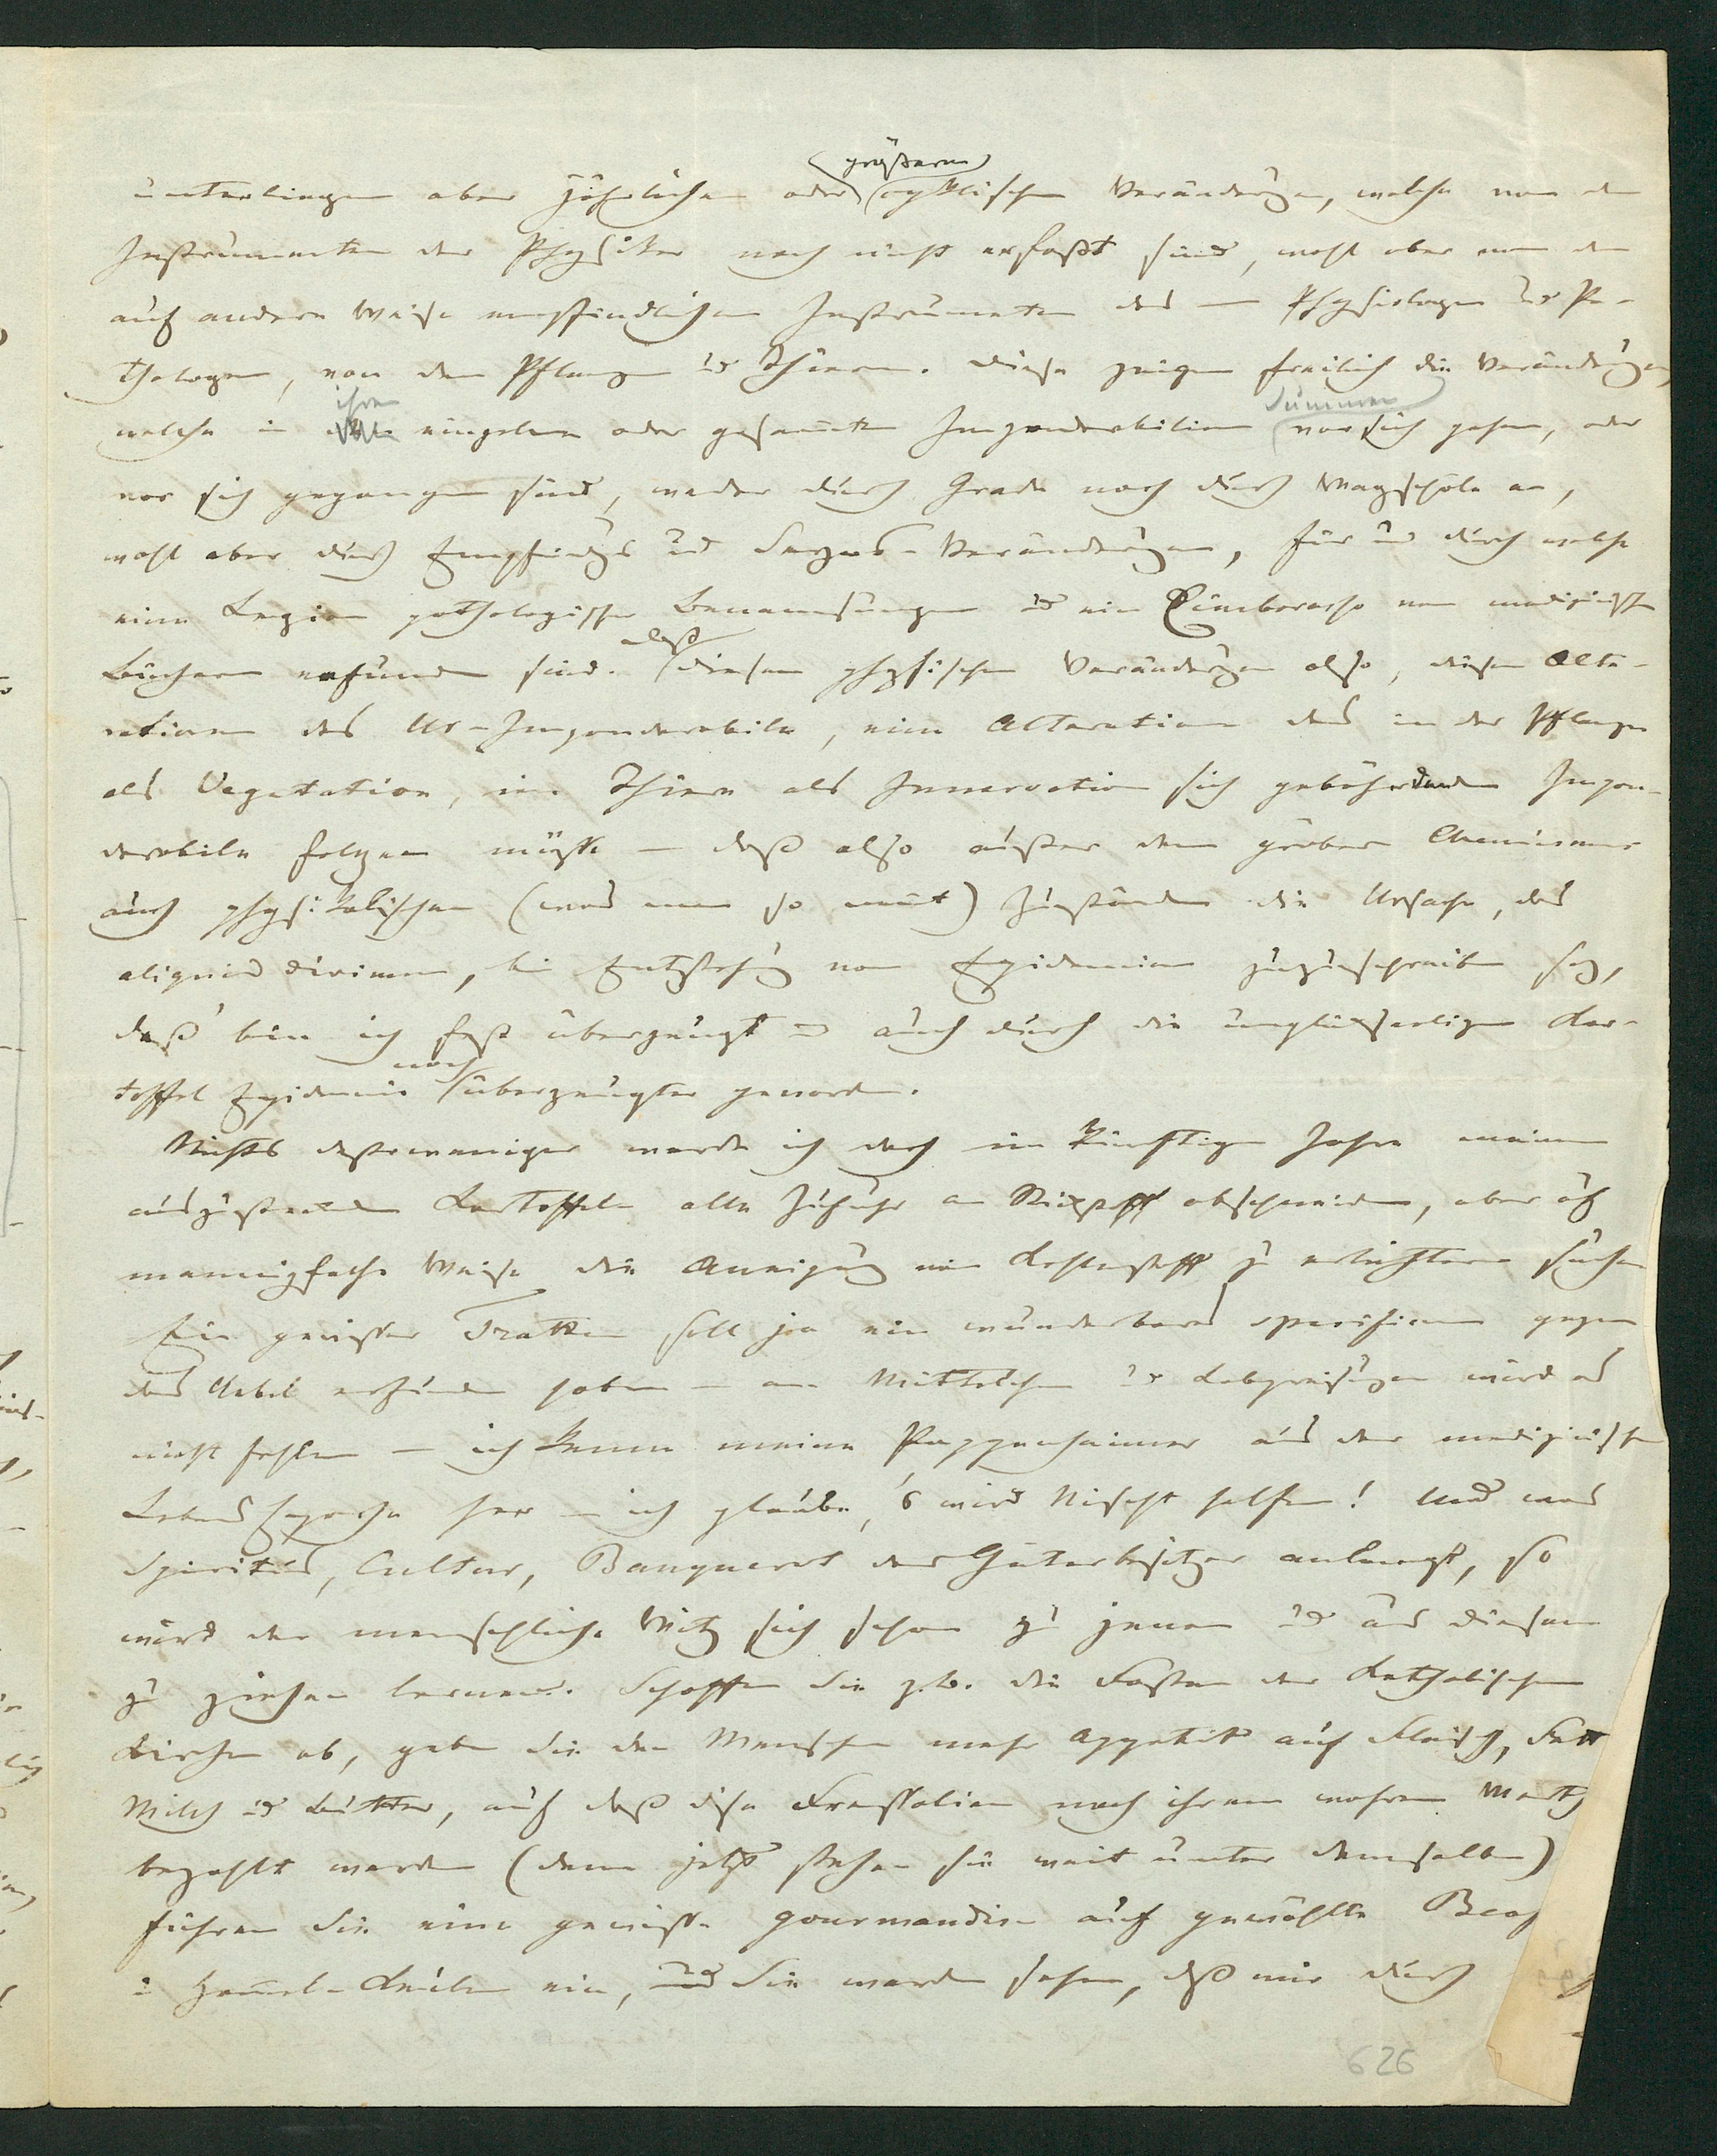 unterliegen aber jährlichen oder größeren cyklischen Veränderungen, welche von den
Instrumenten der Physiker noch nicht erfaßt sind, wohl aber von den
auf andere Weise empfindlichen Instrumenten des Physiologen und Pa-
thologen, von den Pflanzen und Thieren. Diese zeigen freilich die Veränderungen,
welche in ihren einzelnen oder gesammten Imponderabilien Summen vor sich gehen, oder
vor sich gegangen sind, weder durch Grade noch durch Wagschale an,
wohl aber durch Empfindungs und Lebens-Veränderungen, für und durch welche
eine Legion pathologischer Benennungen und ein Chimborasso von medizinischen
Büchern erfunden sind. daß diesen physischen Veränderungen also, diesen Alte-
rationen des Ur-Imponderabile, eine Alteration des in der Pflanze
als Vegetation, im Thiere als Innervation sich gebährdenden Impon-
derabile folgen müßte – daß also außer dem groben Chemismus
auch physikalischen (was man so nennt) Zuständen die Ursache, das
aliquid divinum, bei Entstehung von Epidemien zuzuschreiben sey,
daß bin ich fest überzeugt und auch durch die unglückseelige Kar-
toffel Epidemie noch überzeugter geworden.
Nichts destoweniger werde ich doch im künftigen Jahre meinen
auszusteckenden Kartoffeln alle Zufuhr an Stickstoff abschneiden, aber auf
mannigfache Weise die Aneignung von Kohlenstoff zu erleichtern suchen
Ein gewisser soll ja ein wunderbares specificum gegen
das Uebel erfunden haben – an Mittelchen und Lobpreisungen wird es
nicht fehlen – ich kenne meine Pappenheimer aus der medizinischen
Lebensepoche her – ich glaube, 's wird Nischt helfen! Und was
Spiritus, Cultur, Banquerot der Güterbesitzer anlangt, so
wird der menschliche Witz sich schon zu jenen und aus diesem
zu ziehen lernen. Schaffen Sie z.B. die Fasten der Katholischen
Kirche ab, geben Sie den Menschen mehr Appetit auf Fleisch, Fett
Milch und Butter, auf daß diese Fressalien nach ihrem wahren Werth
bezahlt werden (denn jetzt stehen sie weit unter demselben)
führen Sie eine gewisse gourmandise auf gewählte
Hammel-Keulen ein, und Sie werden sehen, daß wir durch
626